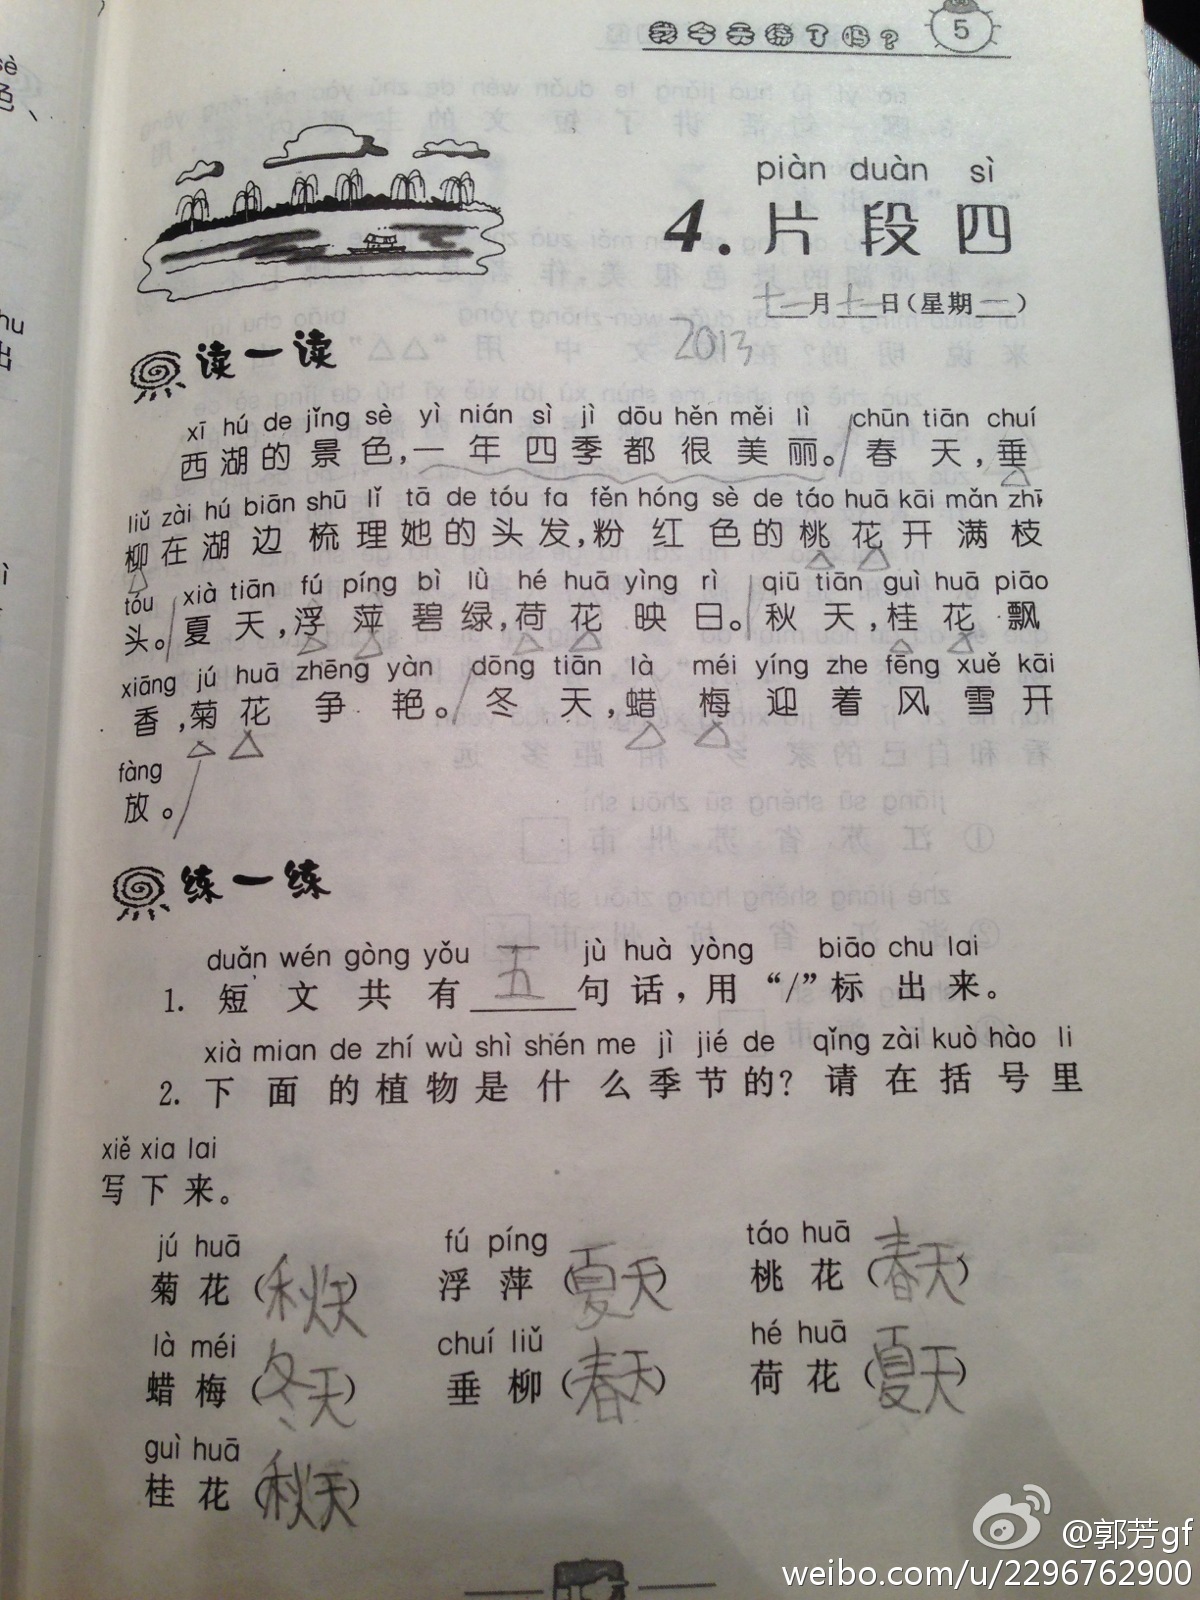 我今天练了吗？ 5
piàn duàn sì
4. 片段四
十一月十一日（星期一）
2013
读一读
xī hú de jǐng sè yì nián sì jì dōu hěn měi lì chūn tiān chuí
西湖的景色，一年四季都很美丽。春天，垂
liǔ zài hú biān shū lǐ tā de tóu fa fěn hóng sè de táo huā kāi mǎn zhī
柳在湖边梳理她的头发，粉红色的桃花开满枝
tóu xià tiān fú píng bì lǜ hé huā yìng rì qiū tiān guì huā piāo
头。夏天，浮萍碧绿，荷花映日。秋天，桂花飘
xiāng jú huā zhēng yàn dōng tiān là méi yíng zhe fēng xuě kāi
香，菊花争艳。冬天，蜡梅迎着风雪开
fàng
放。
练一练
duǎn wén gòng yǒu jù huà yòng biāo chu lai
1. 短文共有五句话，用“/”标出来。
xià mian de zhí wù shì shén me jì jié de qǐng zài kuò hào li
2. 下面的植物是什么季节的？请在括号里
xiě xia lai
写下来。
jú huā fú píng táo huā
菊花（秋天） 浮萍（夏天） 桃花（春天）
là méi chuí liǔ hé huā
蜡梅（冬天） 垂柳（春天） 荷花（夏天）
guì huā
桂花（秋天）
@郭芳gf
weibo.com/u/2296762900